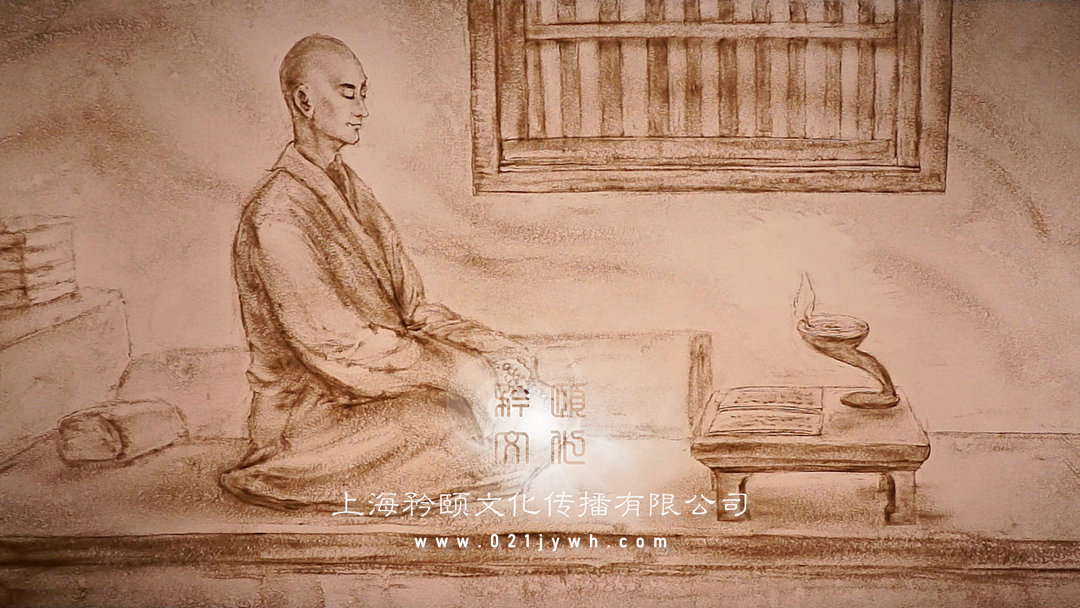 矜颐
文化
上海矜颐文化传播有限公司
www.021jywh.com